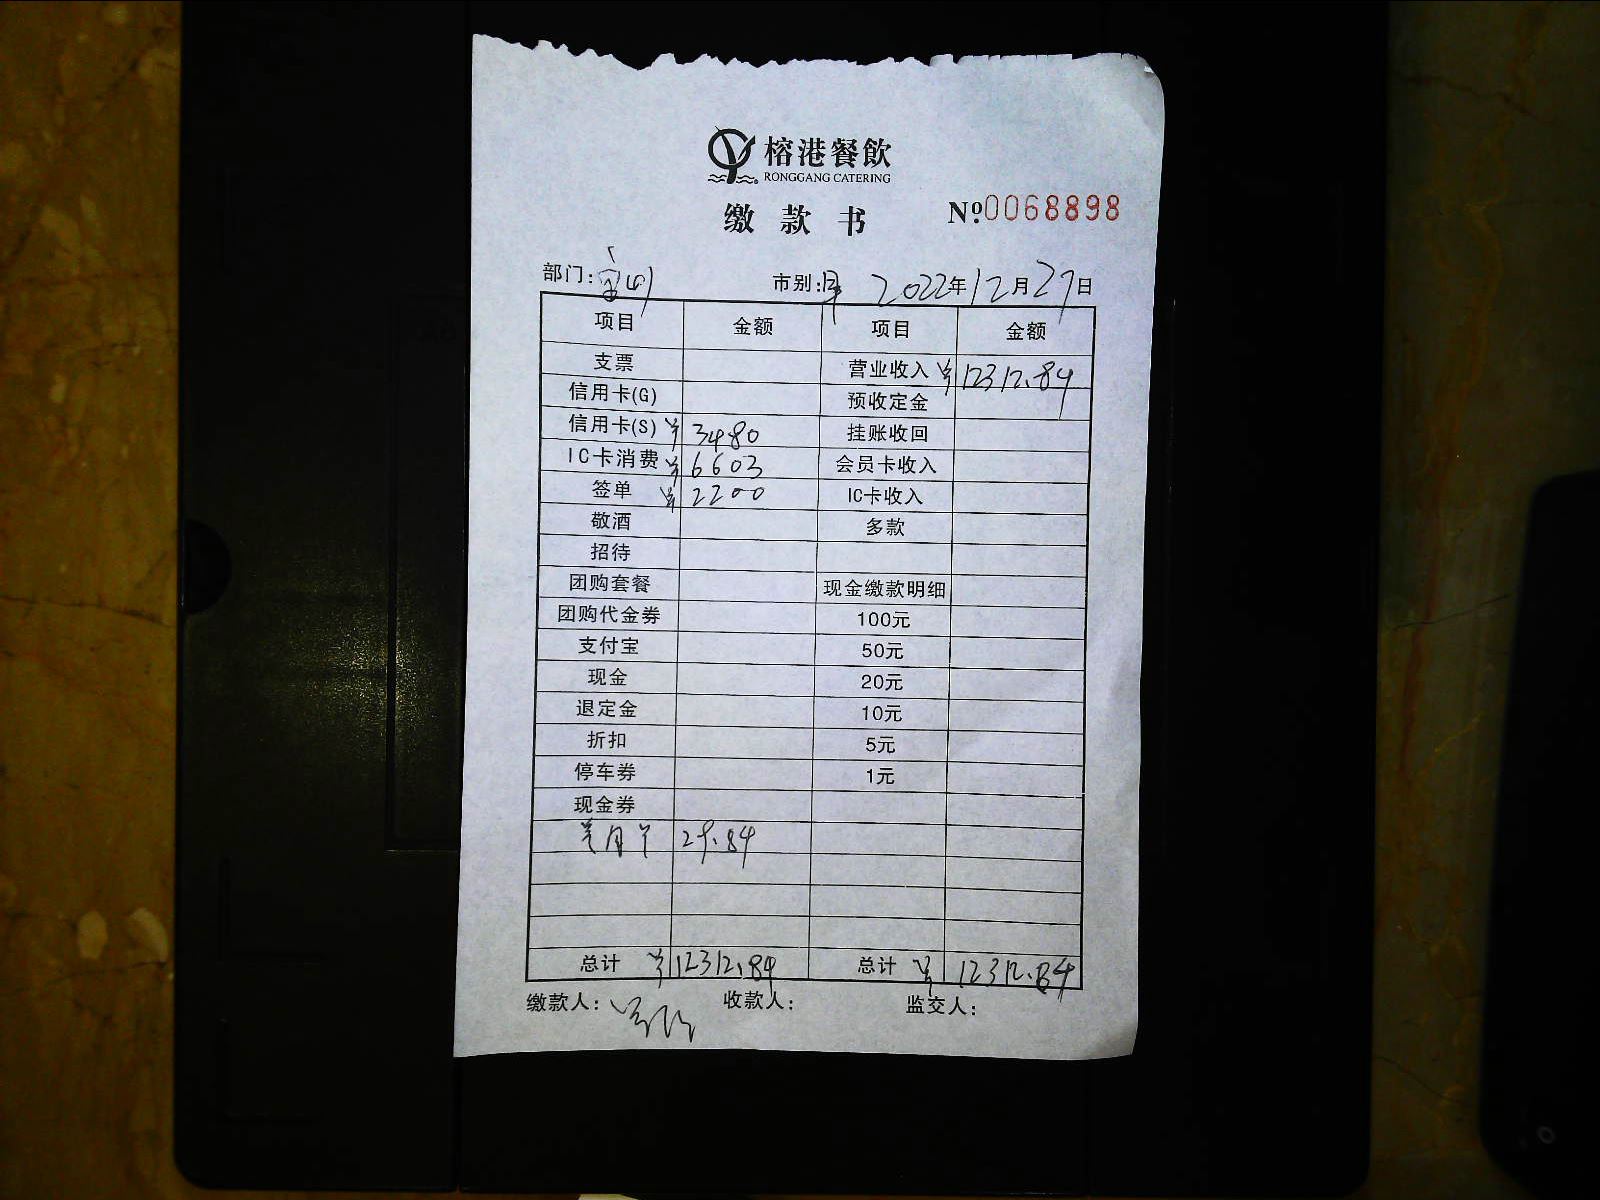 榕港餐飲
RONGGANG CATERING
缴款书 №0068898
部门: 市别: 2022年12月27日
项目 金额 项目 金额
支票 营业收入 ¥12312.84
信用卡(G) 预收定金
信用卡(S) ¥3480 挂账收回
IC卡消费 ¥6603 会员卡收入
签单 ¥2200 IC卡收入
敬酒 多款
招待
团购套餐 现金缴款明细
团购代金券 100元
支付宝 50元
现金 20元
退定金 10元
折扣 5元
停车券 1元
现金券
29.84
总计 ¥12312.84 总计 ¥12312.84
缴款人: 收款人: 监交人: